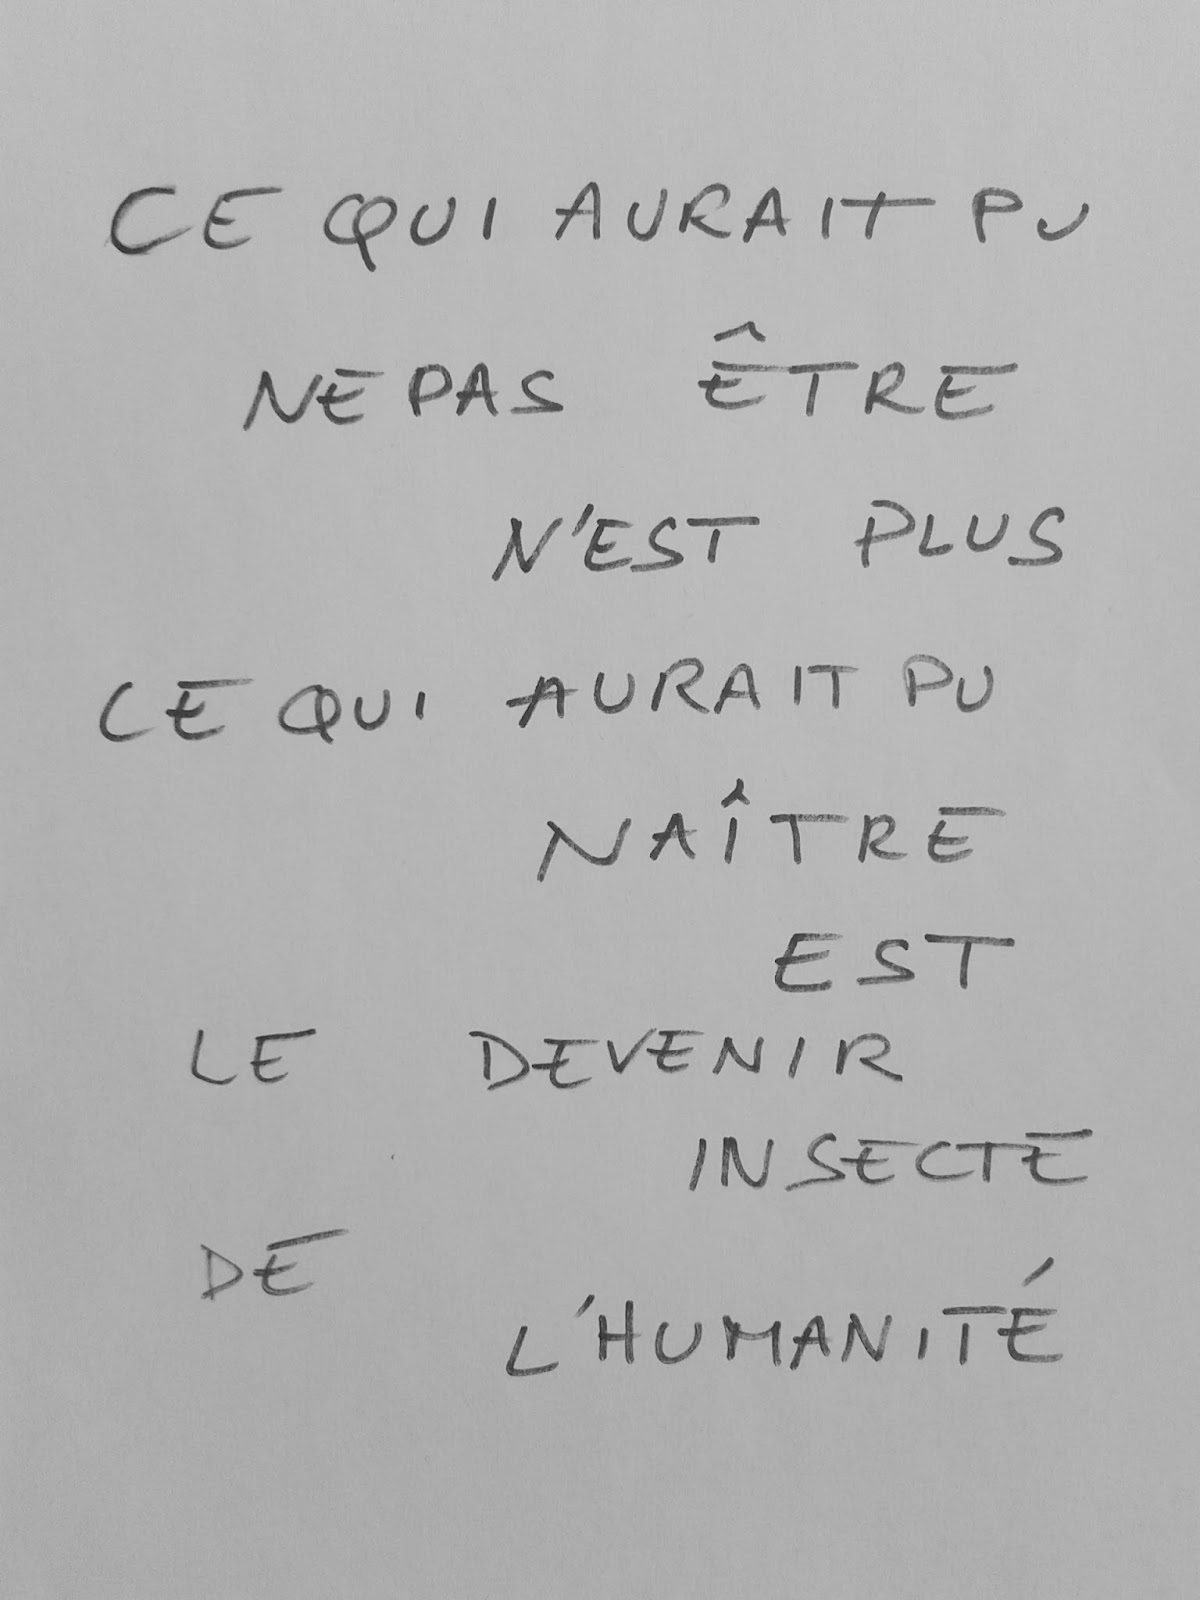 CE QUI AURAIT PU
NE PAS ÊTRE
N'EST PLUS
CE QUI AURAIT PU
NAÎTRE
EST
LE DEVENIR
INSECTE
DE
L'HUMANITÉ